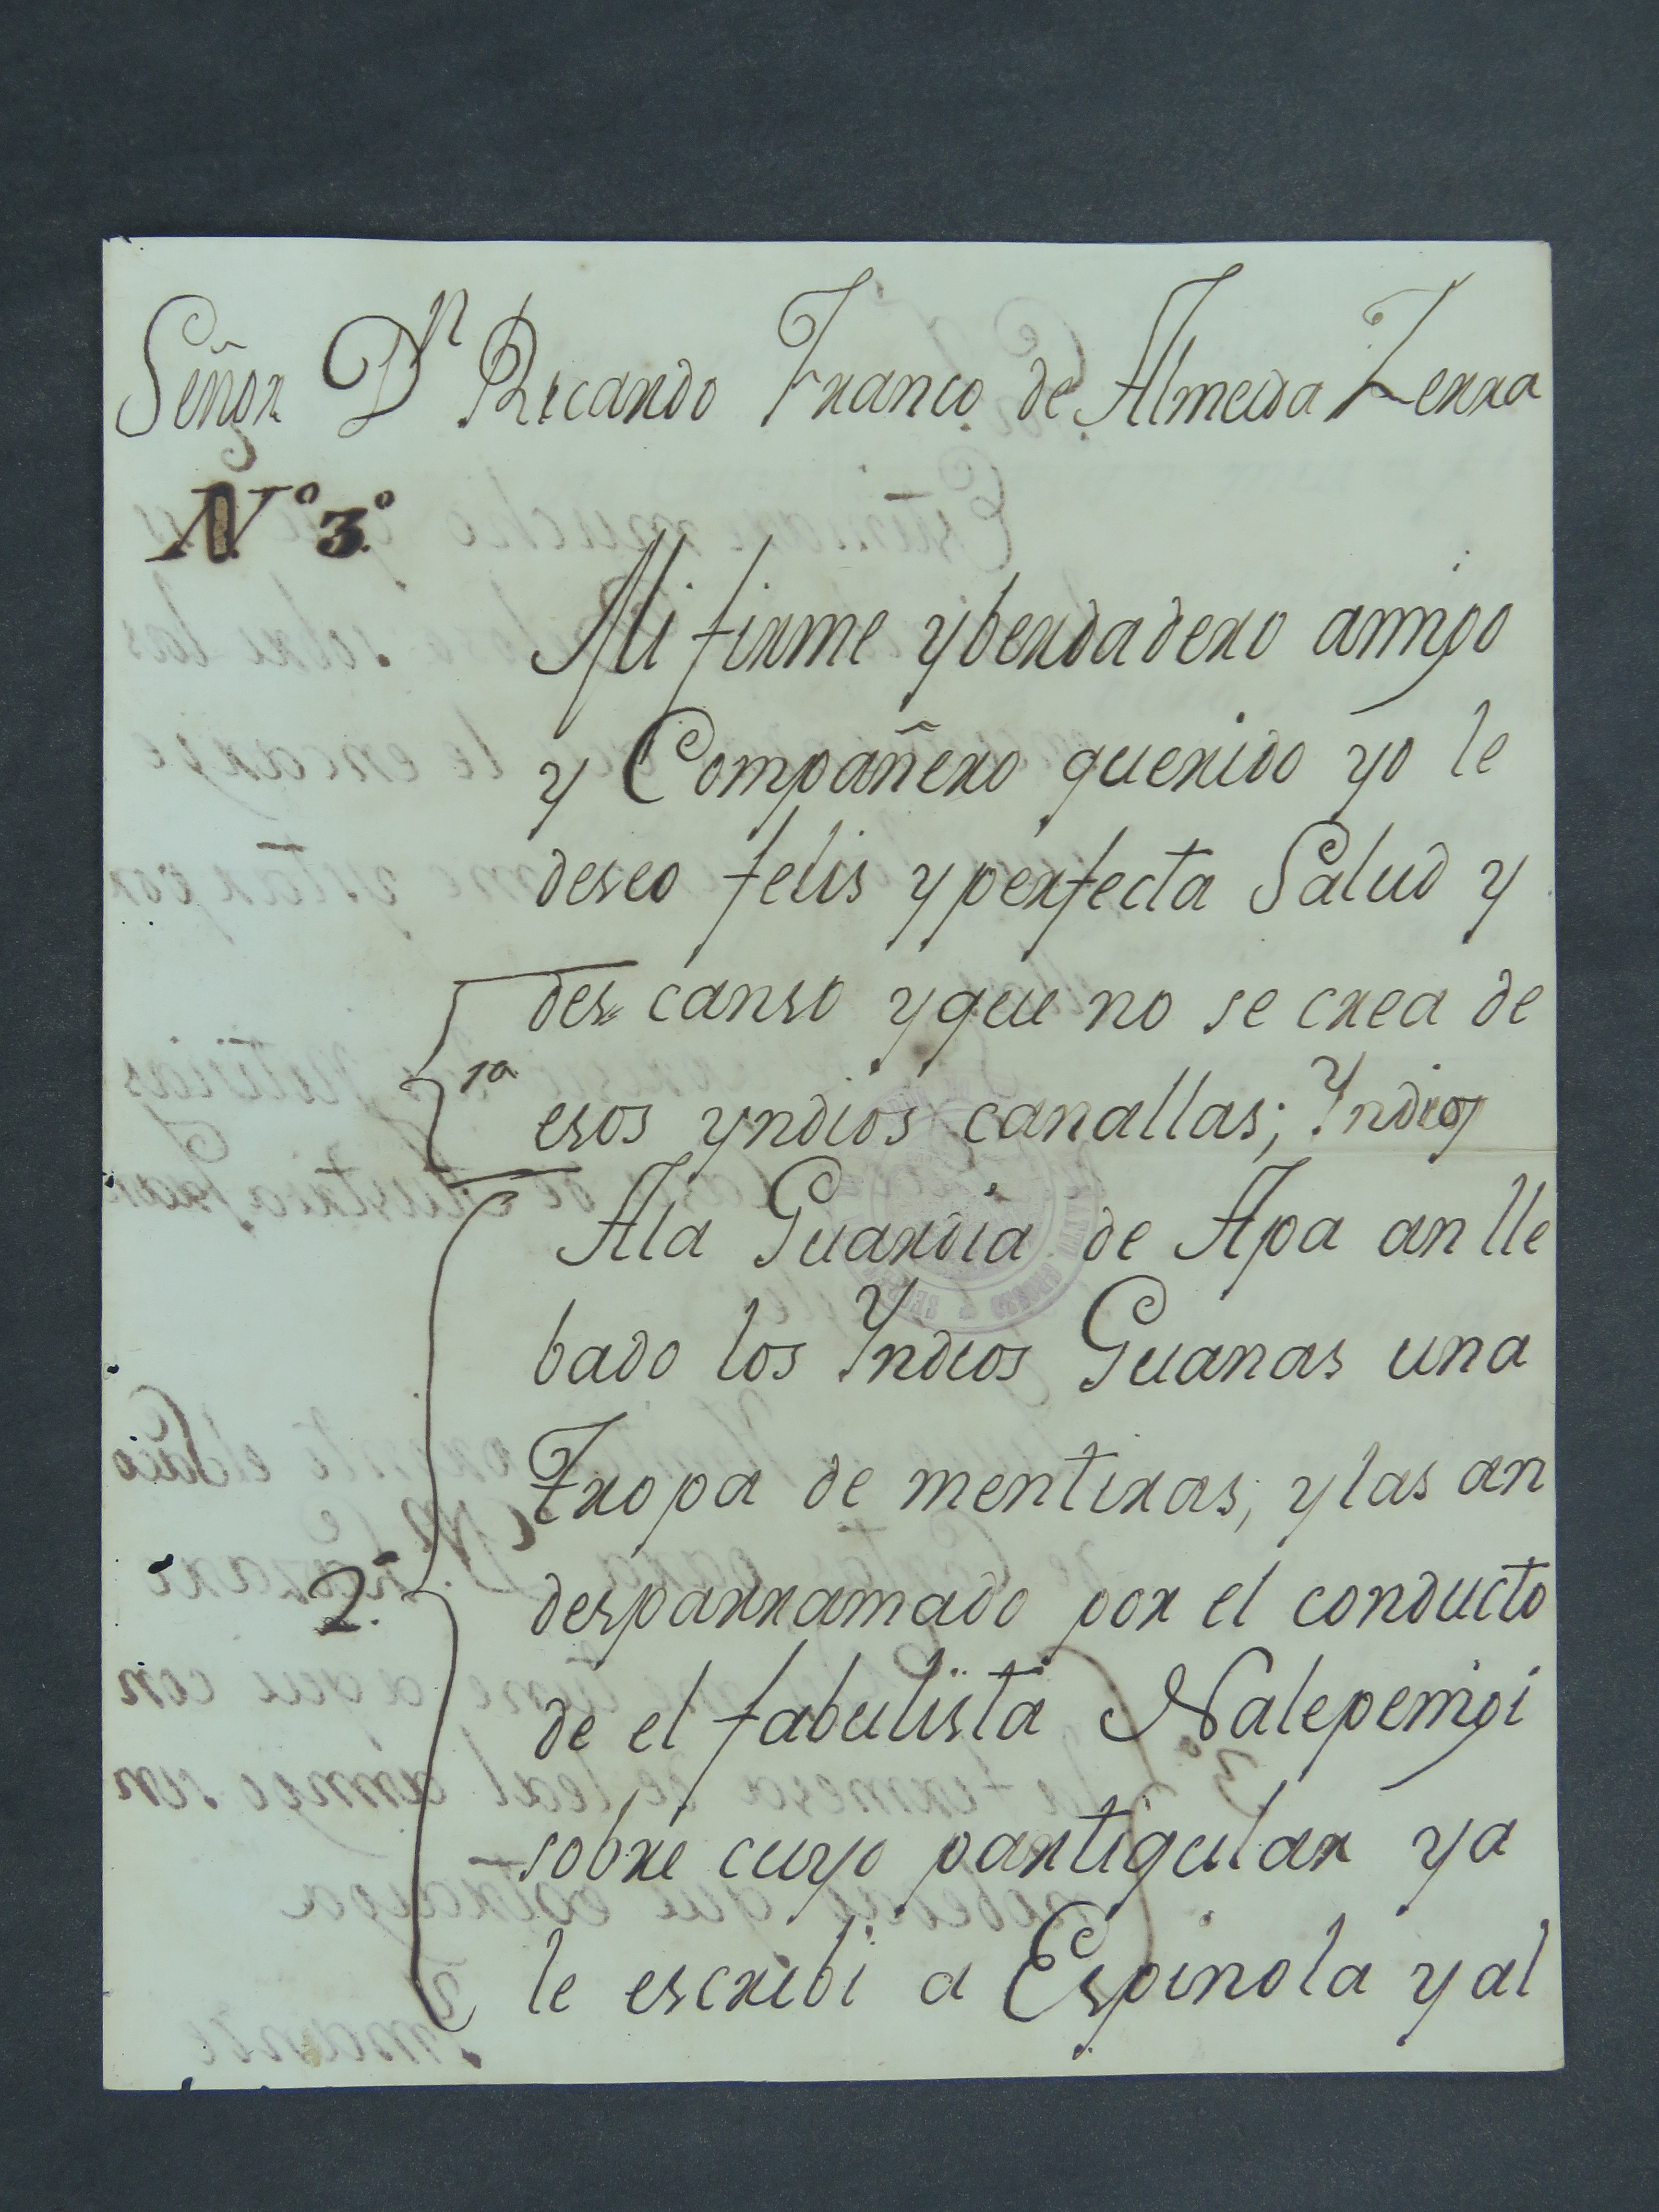 Señor Dn Ricardo Franco de Almeida Zerra
No 3o
Mi firme y berdadero amigo
y Compañero querido yo le
deseo felis y perfecta Salud y
des canso y que no se crea de
1a
esos yndios canallas; Yndios
A la Guardia de Apa an lle
bado los Yndios Guanas una
Tropa de mentiras, y las an
2a desparramado por el conducto
de el fabulista Nalepemigi
sobre cuyo partigular ya
le escribi a Espinola y al